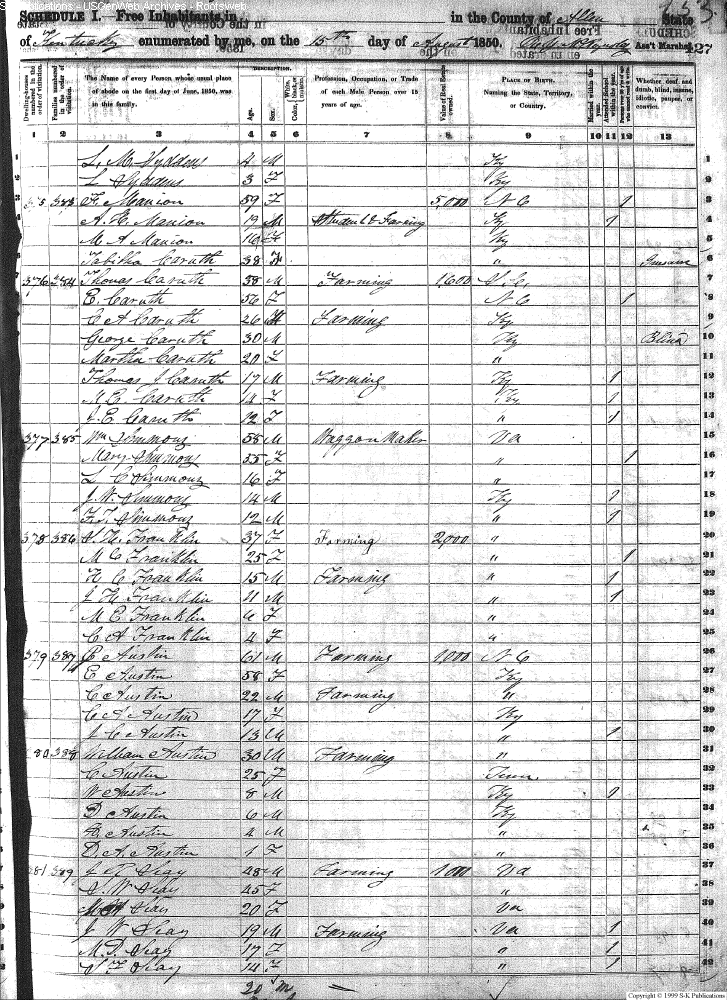 Publications - USGenWeb Archives - Rootsweb
SCHEDULE I. - Free Inhabitants in in the County of Allen State
of Kentucky enumerated by me, on the 15th day of August 1850. Ass't Marshal 227
DESCRIPTION.
Dwelling-houses numbered in the order of visitation. Families numbered in the order of visitation. The Name of every Person whose usual place of abode on the first day of June, 1850, was in this family. Age. Sex. Color, White, black, or mulatto. Profession, Occupation, or Trade of each Male Person over 15 years of age. Value of Real Estate owned. PLACE OF BIRTH. Naming the State, Territory, or Country. Married within the year. Attended School within the year. Whether deaf and dumb, blind, insane, idiotic, pauper, or convict.
1 2 3 4 5 6 7 8 9 10 11 12 13
1 L. M. 4 M Ky 1
2 L 3 F Ky 2
3 383 F. Manion 59 F 5,000 N C 1 3
4 A. H. Manion 19 M Student & Farming Ky 1 4
5 M A Manion 16 F Ky 5
6 Tabitha Caruth 38 F " Insane 6
7 376 384 Thomas Caruth 58 M Farming 1,600 7
8 E. Caruth 56 F N C 1 8
9 C A Caruth 26 M Farming Ky 9
10 George Caruth 30 M Ky Blind 10
11 Martha Caruth 20 F " 11
12 Thomas J Caruth 17 M Farming Ky 1 12
13 M C. Caruth 14 F Ky 1 13
14 J. E Caruth 12 F " 1 14
15 377 385 Wm Simmonz 58 M Waggon Maker Va 15
16 Mary Simmonz 55 F " 1 16
17 L C Simmonz 16 F " 17
18 J. W. Simmonz 14 M Ky 1 18
19 F. T. Simmonz 12 M " 1 19
20 378 386 Franklin 37 Farming 2,000 " 20
21 M C Franklin 25 F " 1 21
22 H C Franklin 15 M Farming " 1 22
23 J H Franklin 11 M " 1 23
24 M E Franklin 6 F " 24
25 C A Franklin 4 F " 25
26 379 387 Austin 61 M Farming 1,000 N C 26
27 E Austin 58 F Ky 27
28 C Austin 22 M Farming " 28
29 C A Austin 17 F Ky 29
30 J. C Austin 13 M " 1 30
31 380 388 William Austin 30 M Farming " 31
32 C Austin 25 F Tenn 32
33 W Austin 8 M Ky 1 33
34 D Austin 6 M Ky 34
35 H. Austin 4 M " 35
36 D. A. Austin 1 F " 36
37 381 389 J R Seay 48 M Farming 1,000 Va 37
38 W Seay 45 F " 38
39 Seay 20 F Va 39
40 J W Seay 19 M Farming Va 1 40
41 M. D. Seay 17 F " 1 41
42 F Seay 14 F " 1 42
20 M
Copyright © 1999 S-K Publications